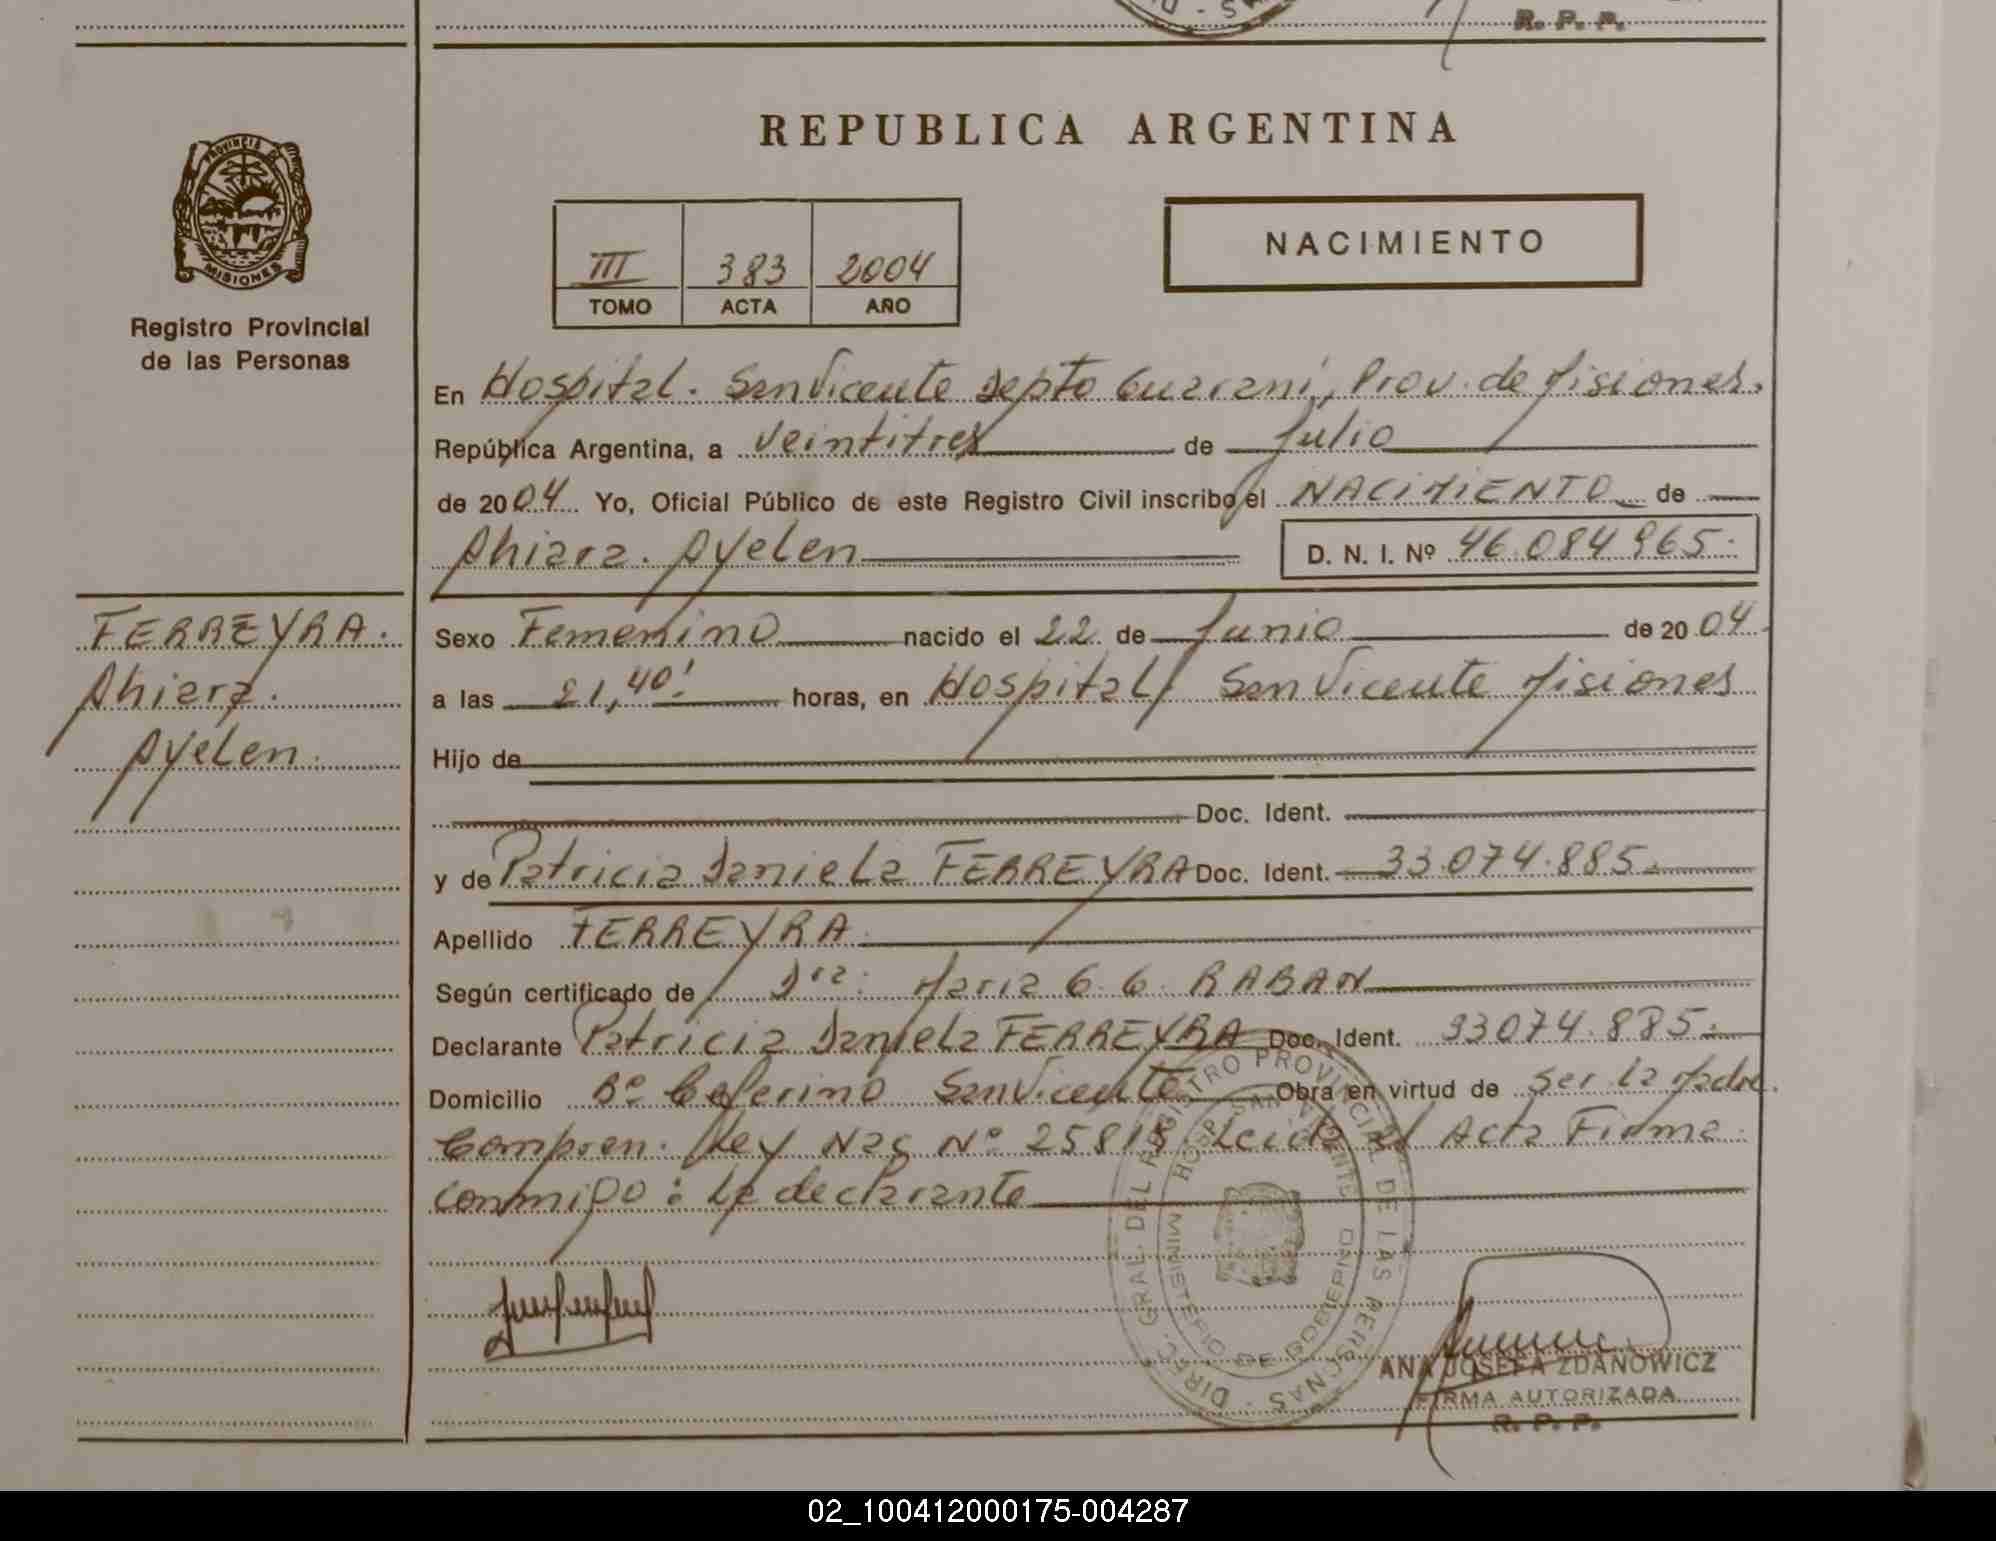 R. P. P.
REPUBLICA ARGENTINA
PROVINCIA DE
MISIONES
Registro Provincial
de las Personas
III 383 2004
TOMO ACTA AÑO
NACIMIENTO
En Hospital. San Vicente Depto Guarani, Prov. de Misiones.
República Argentina, a veintitres de Julio
de 2004. Yo, Oficial Público de este Registro Civil inscribo el NACIMIENTO de
Ahiara. Ayelen D. N. I. Nº 46.084.965.
FERREYRA.
Ahiara.
Ayelen.
Sexo Femenino nacido el 22 de Junio de 2004.
a las 21,40'. horas, en Hospital, San Vicente Misiones
Hijo de
Doc. Ident.
y de Patricia Daniela FERREYRA Doc. Ident. 33.074.885.
Apellido FERREYRA
Según certificado de Dra. Maria G. G. RABAN
Declarante Patricia Daniela FERREYRA Doc. Ident. 33074.885.
Domicilio Bº Ceferino San Vicente Obra en virtud de ser la Madre.
Compren. Ley Nac Nº 25818 Leida el Acta Firma
conmigo: La declarante
DIREC. GRAL. DEL REGISTRO PROVINCIAL DE LAS PERSONAS
HOSP. SAN VICENTE
MINISTERIO DE GOBIERNO
ANA JOSEFA ZDANOWICZ
FIRMA AUTORIZADA
R. P. P.
02_100412000175-004287